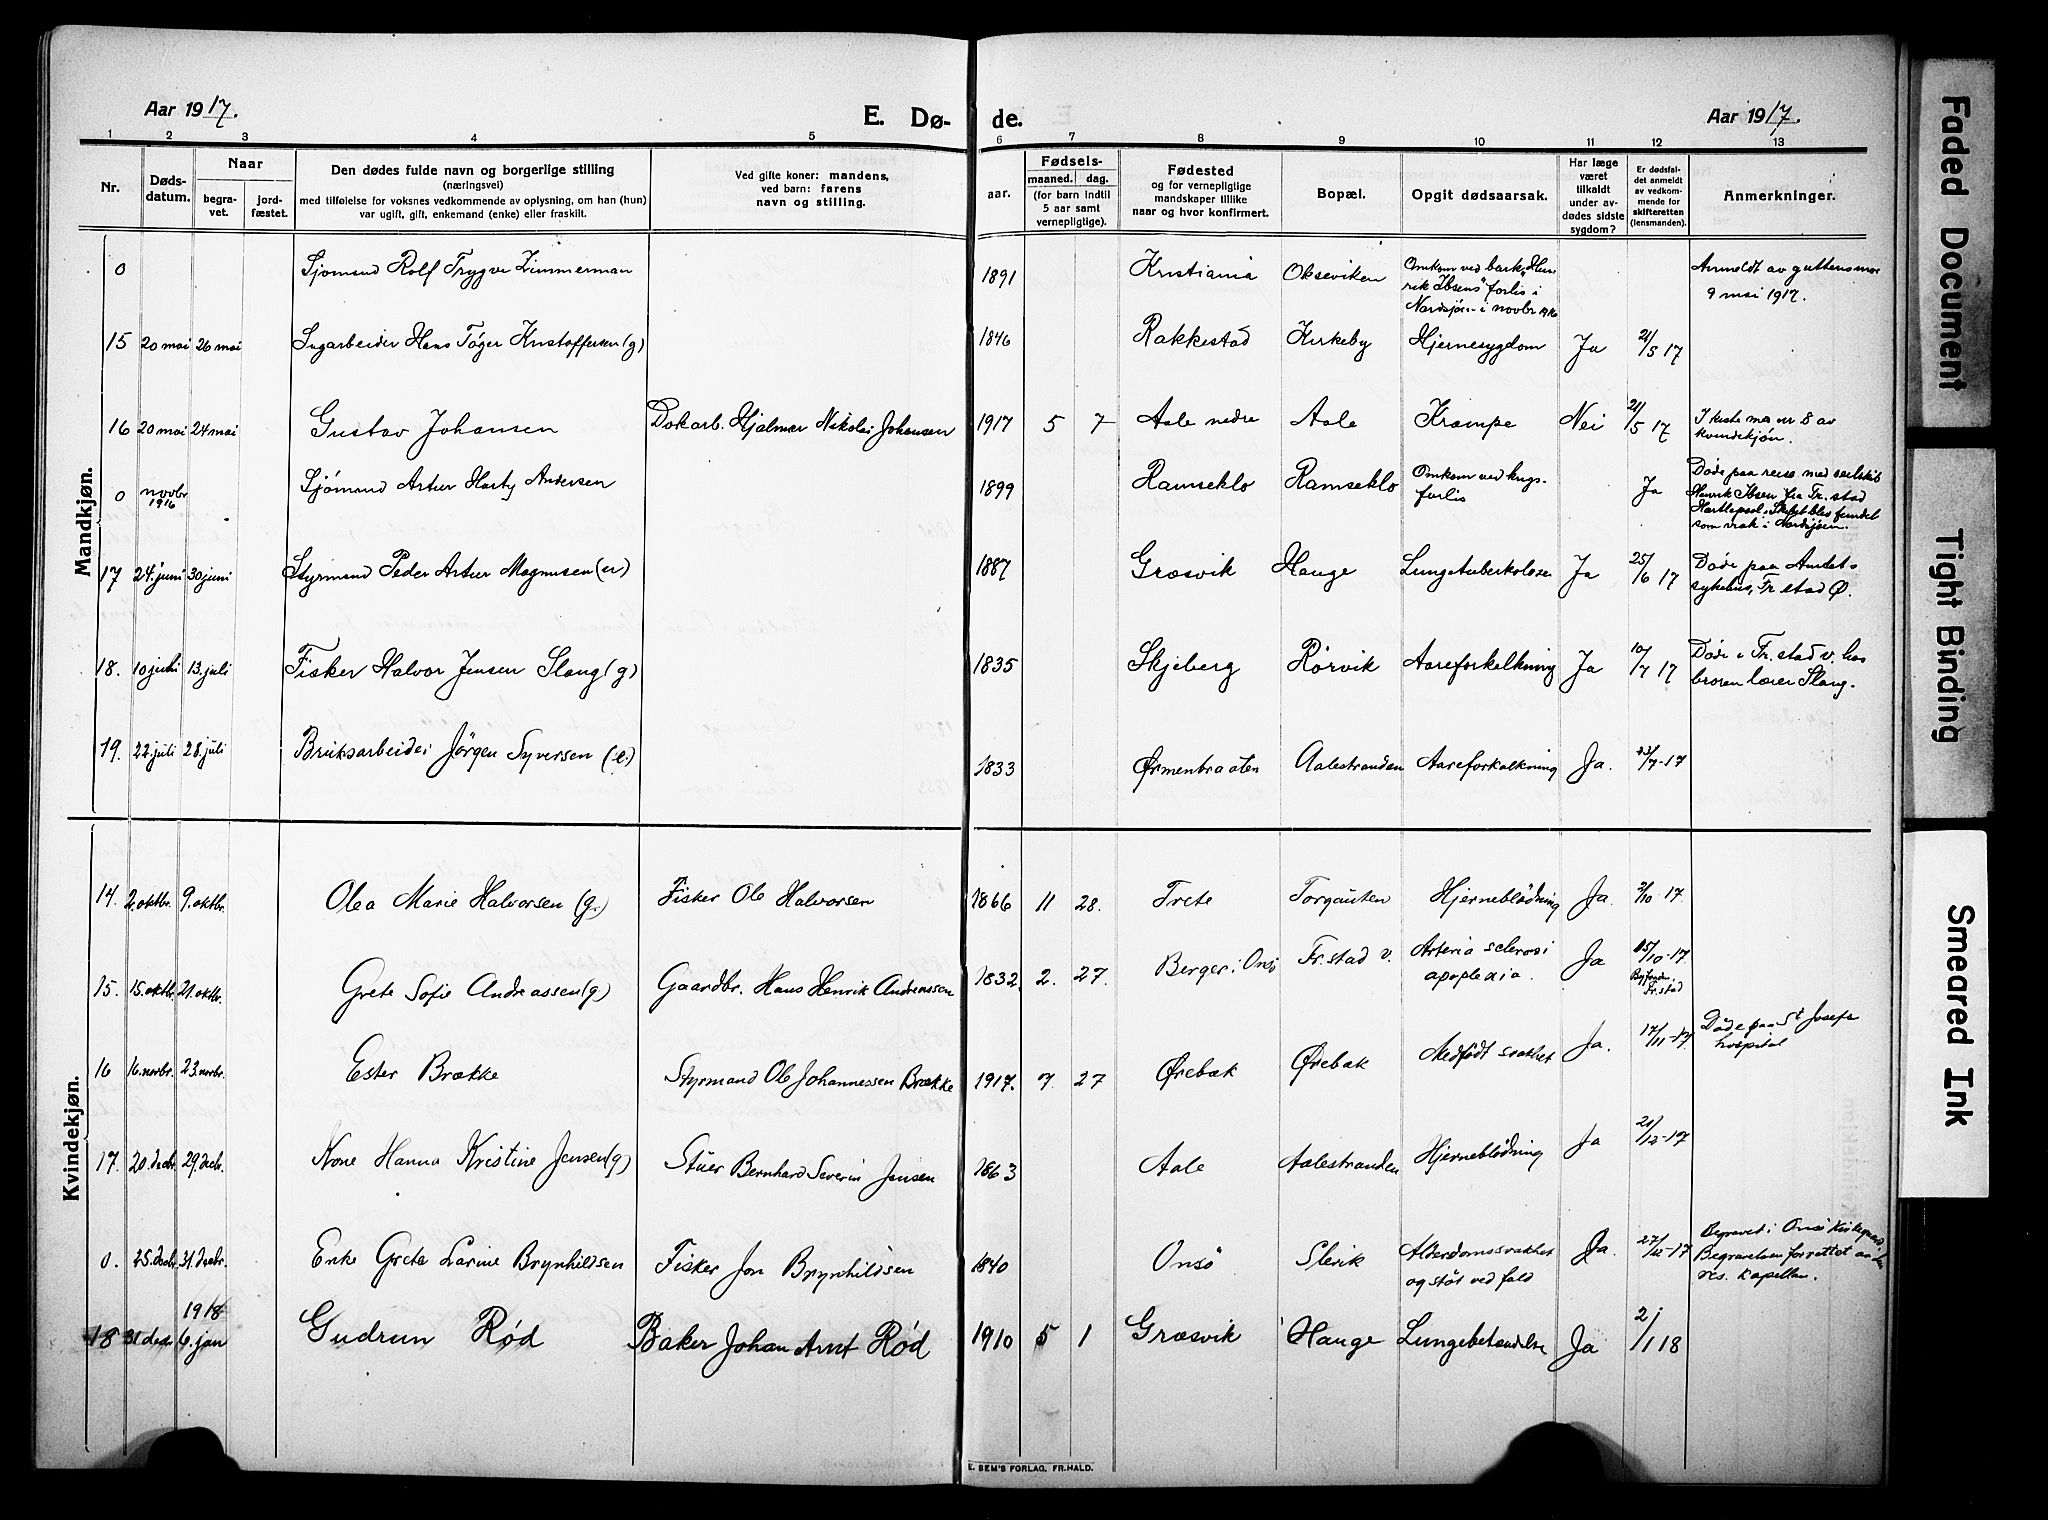 Aar 1917.
E. Dø-
de.
Aar 1917.
1 2 3 4 5 6 7 8 9 10 11 12 13
Nr.
Døds-
datum.
Naar
begra-
vet.
jord-
fæstet.
Den dødes fulde navn og borgerlige stilling
(næringsvei)
med tilføielse for voksnes vedkommende av oplysning, om han (hun)
var ugift, gift, enkemand (enke) eller fraskilt.
Ved gifte koner: mandens,
ved barn: farens
navn og stilling.
aar.
Fødsels-
maaned. dag.
(for barn indtil
5 aar samt
vernepligtige).
Fødested
og for vernepligtige
mandskaper tillike
naar og hvor konfirmert.
Bopæl.
Opgit dødsaarsak.
Har læge
været
tilkaldt
under av-
dødes sidste
sygdom?
Er dødsfal-
det anmeldt
av vedkom-
mende for
skifteretten
(lensmanden).
Anmerkninger.
Mandkjøn.
0 Sjømand Rolf Trygve Zimmerman 1891 Kristiania Okseviken Omkom ved bark "Hen-
rik Ibsens" forlis i
Nordsjøen i novbr 1916
Anmeldt av guttens mor
9 mai 1917.
15 20 mai 26 mai Sagarbeider Hans Tøger Kristoffersen (g) 1846 Rakkestad Kirkeby Hjernesygdom Ja 21/5 17
16 20 mai 24 mai Gustav Johansen Dokarb. Hjalmar Nikolai Johansen 1917 5 7 Aale nedre Aale Krampe Nei 21/5 17 I kiste med nr 8 av
kvindekjøn.
0 novbr
1916 Sjømand Artur Harty Andersen 1899 Ramseklo Ramseklo Omkom ved krigs-
forlis Ja Døde paa reise med seilskib
Henrik Ibsen fra Fr.stad
Hartlepool. Skibet blev fundet
som vrak i Nordsjøen.
17 24. juni 30 juni Styrmand Peder Artur Magnusen (u) 1887 Græsvik Hauge Lungetuberkolose Ja 25/6 17 Døde paa Amtets
sykehus, Fr.stad Ø.
18. 10 juli 13. juli Fisker Halvor Jensen Slang (g) 1835 Skjeberg Rørvik Aareforkalkning Ja 10/7 17 Døde i Fr.stad v. hos
broren lærer Slang.
19. 22. juli 28. juli Bruksarbeider Jørgen Syversen (e.) 1833 Ørmenbraaten Aalestranden Aareforkalkning Ja. 23/7-17
Kvindekjøn.
14. 2. oktbr. 9. oktbr. Olea Marie Halvorsen (g.) Fisker Ole Halvorsen 1866 11 28. Trete Torgauten Hjerneblødning Ja. 2/10-17.
15. 15. oktbr. 21. oktbr. Grete Sofie Andreassen (g) Gaardbr. Hans Henrik Andreassen 1832. 2. 27. Berger i Onsø Fr.stad v. Arteria sclerosi
apoplexia. Ja 15/10-17.
Byfogden
Fr.stad
16 16. novbr. 23. novbr. Ester Brække Styrmand Ole Johannessen Brække 1917. 7. 27 Ørebæk Ørebæk Medfødt svakhet Ja. 17/11-17. Døde paa St Josefs
hospital
17. 20. decbr. 29. decbr. Kone Hanna Kristine Jensen (g) Stuer Bernhard Severin Jensen 1863 Aale Aalestranden Hjerneblødning Ja 21/12-17
0. 25. decbr. 31. decbr. Enke Grete Larine Brynhildsen Fisker Jon Brynhildsen 1840 Onsø Slevik Alderdomssvakhet
og støt ved fald Ja. 27/12-17 Begravet i Onsø Kirkegaard.
Begravelsen forrettet av
res. kapellan.
1918
18 31 decbr 6. jan Gudrun Rød Baker Johan Arnt Rød 1910 5 1 Græsvik Hauge Lungebetændelse Ja 2/1 18
E. SEM'S FORLAG, FR.HALD.
Faded Document
Tight Binding
Smeared Ink